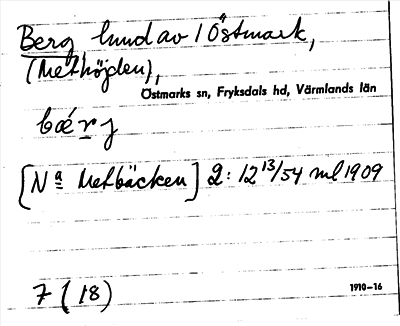 Berg hmd av 1 Östmark,
(Methöjden),
Östmarks sn, Fryksdals hd, Värmlands län
bærj
[Na Metbäcken] 2: 12 13/54 ml 1909
7 (18)
1910–16